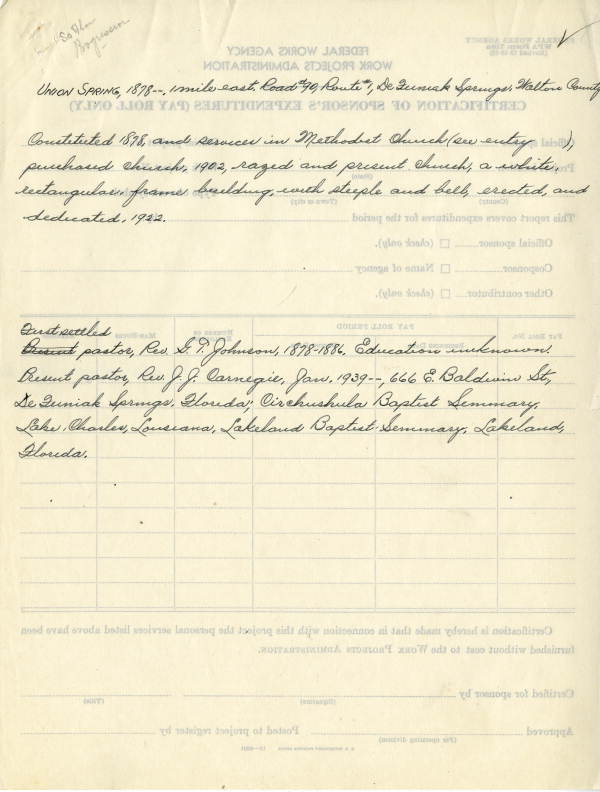 So Ala
UNION SPRING, 1878--, 1 mile east, Road #90, Route #1, De Funiak Springs, Walton County
Constituted 1878, and services in Methodist Church (see entry     ),
purchased church, 1902, razed and present church, a white,
rectangular frame building, with steeple and bell, erected, and
dedicated, 1922.
First settled
Present pastor, Rev. G. T. Johnson, 1878-1886. Education unknown.
Present pastor, Rev. J. J. Carnegie, Jan. 1939--, 666 E. Baldwin St,
De Funiak Springs, Florida; Baptist Seminary,
Lake Charles, Lousiana, Lakeland Baptist Seminary, Lakeland,
Florida.
FEDERAL WORKS AGENCY
WORK PROJECTS ADMINISTRATION
CERTIFICATION OF SPONSOR'S EXPENDITURES (PAY ROLL ONLY)
FEDERAL WORKS AGENCY
WPA Form
This report covers expenditures for the period
Official sponsor (check only).
Cosponsor Name of agency
Other contributor (check only).
PAY ROLL PERIOD
PAY ROLL NO.
Certification is hereby made that in connection with this project the personal services listed above have been
furnished without cost to the WORK PROJECTS ADMINISTRATION.
Certified for sponsor by
(Signature) (Title)
Approved Posted to project register by
(For operating division)